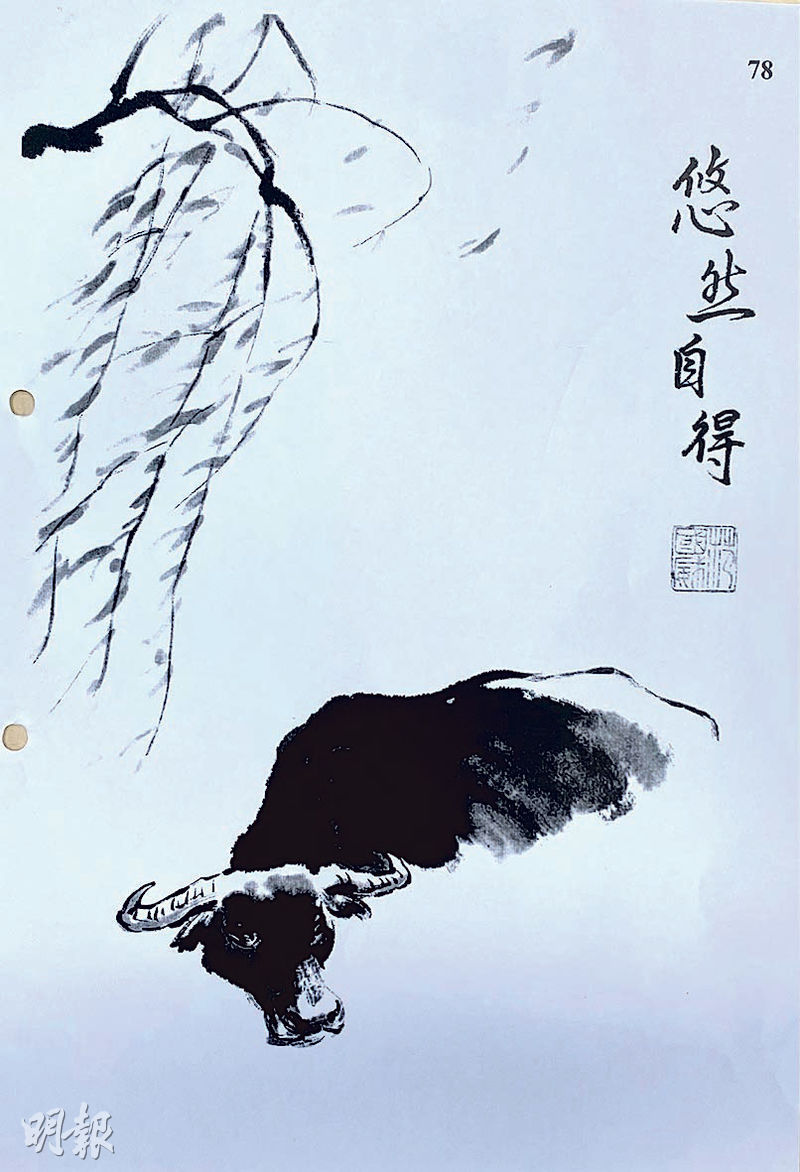 78
悠然自得
明報